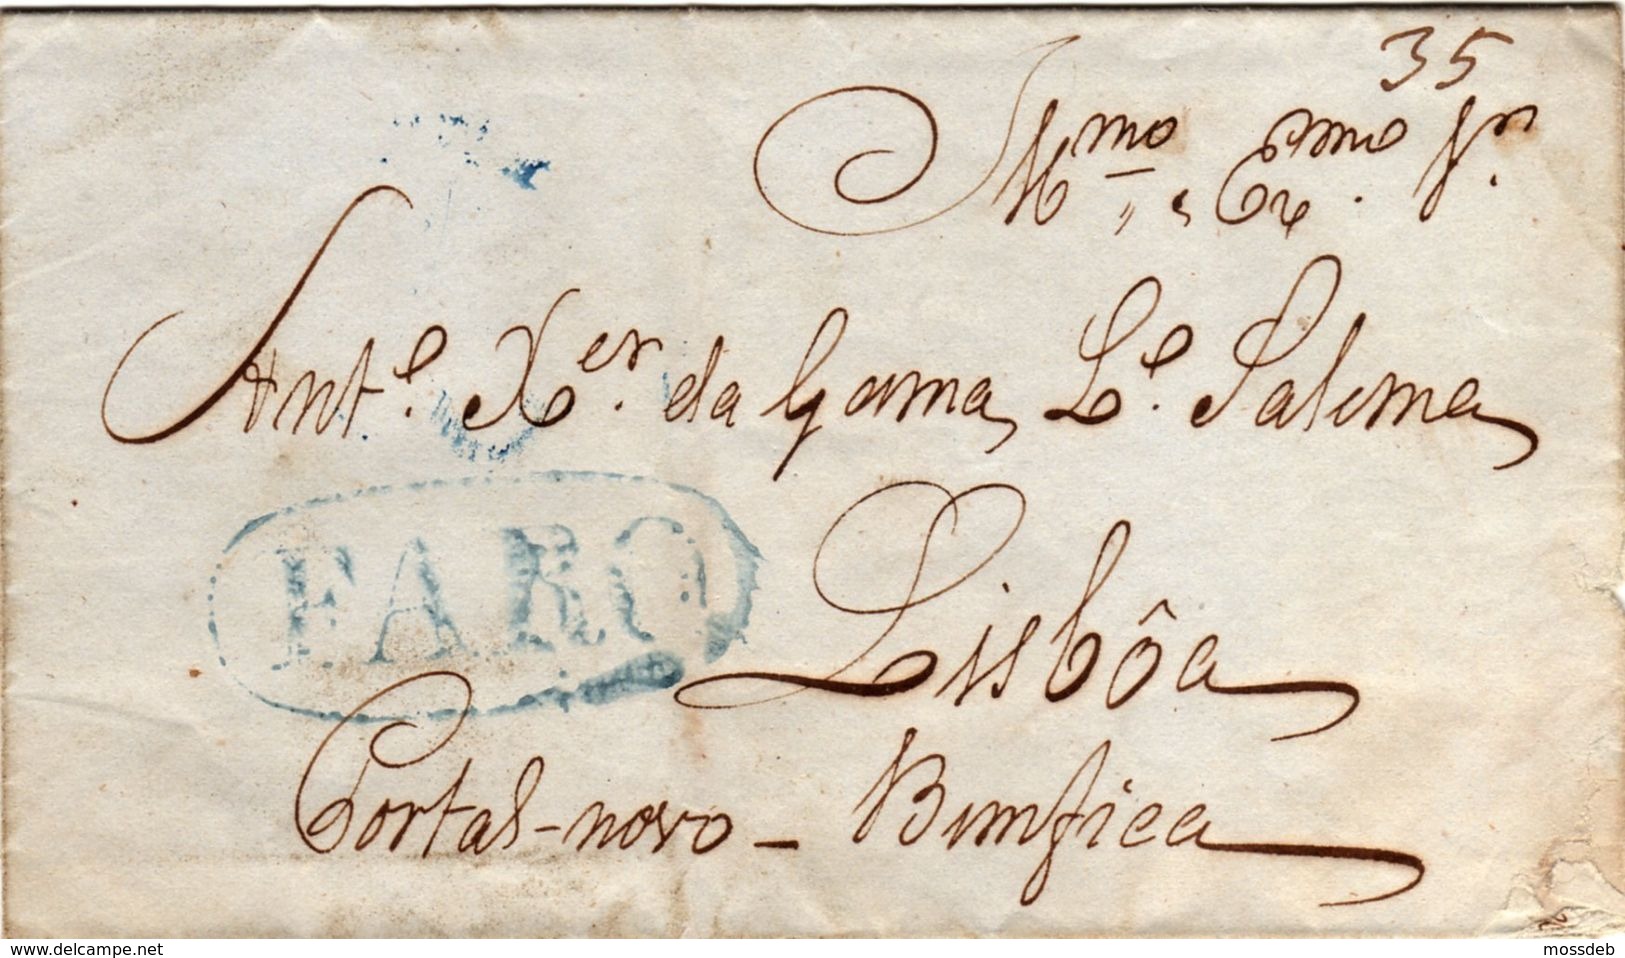 35
Illmo e Exmo Sr.
Anto. Xer. da Gama Lo. Palerma
FARO
Lisbôa
Portal-novo - Bemfica
www.delcampe.net
mossdeb